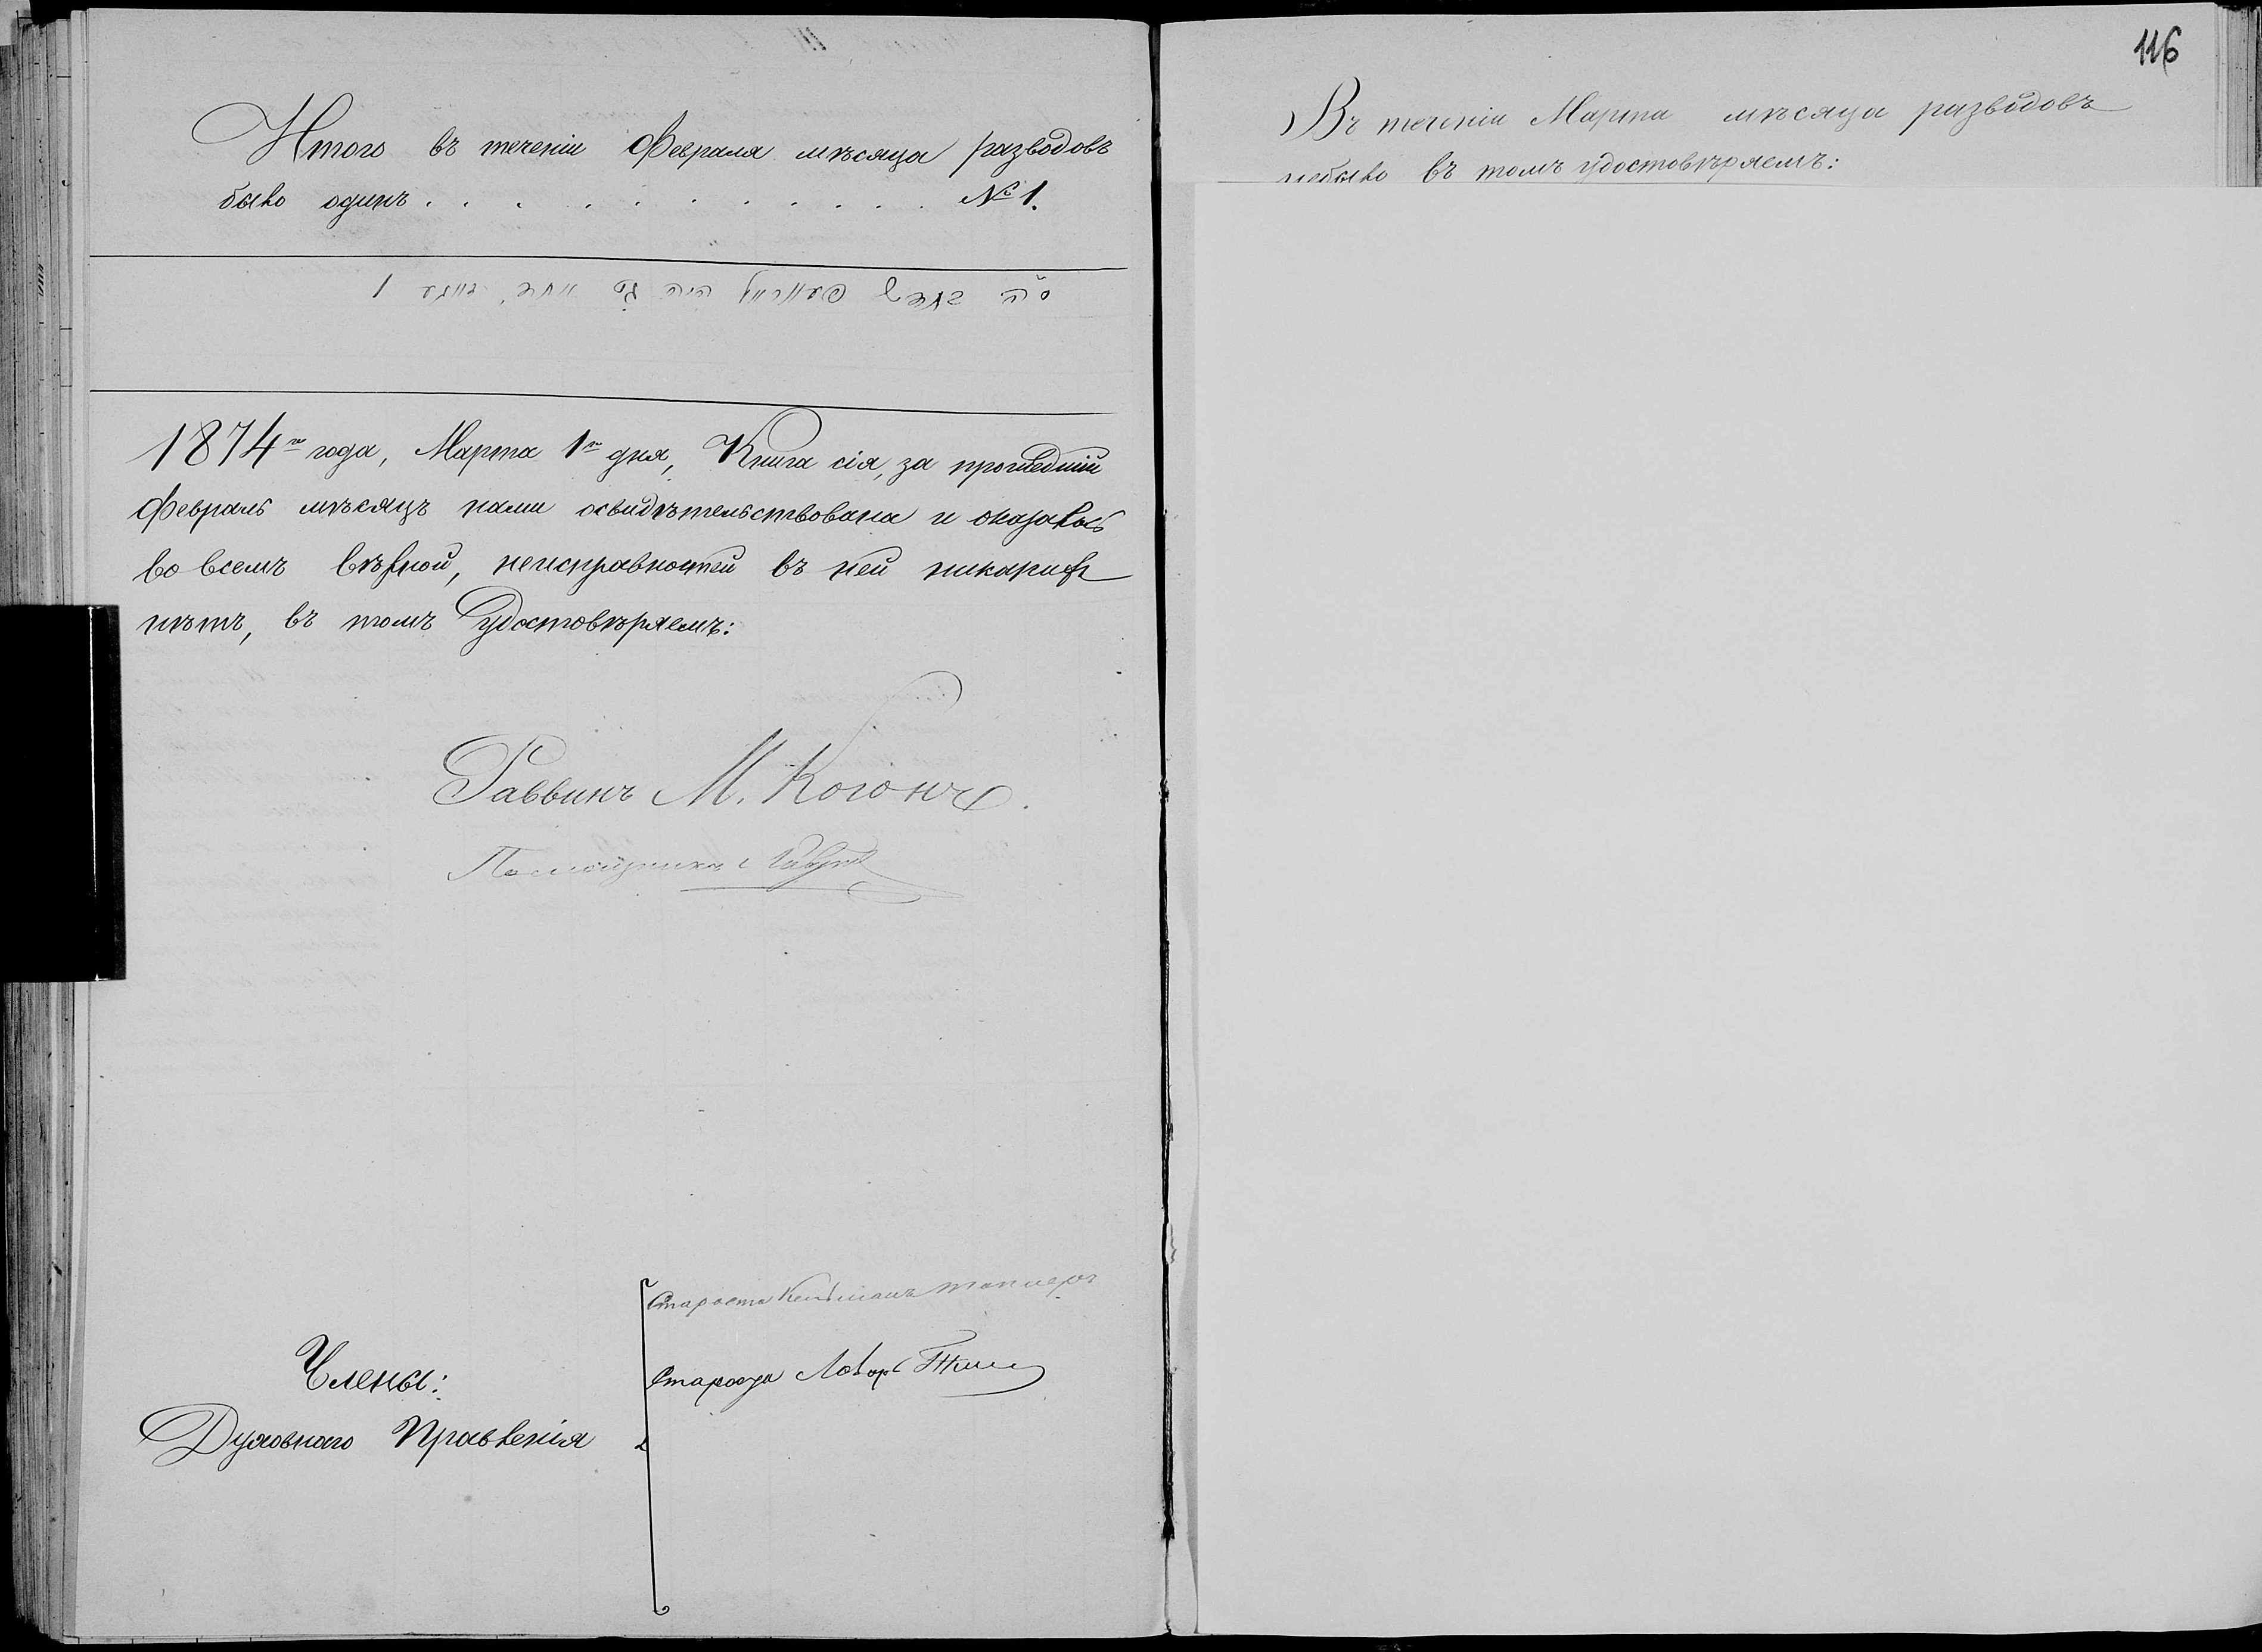 Итого въ теченіи Февраля мѣсяца разводовъ
было одинъ . . . . . . . . . . № 1.
1874го года, Марта 1го дня, Книга сія, за прошедшій
Февраль мѣсяцъ нами освидѣтельствована и оказалось
во всемъ вѣрной, неисправностей въ ней никакихъ
нѣтъ, въ томъ удостовѣряемъ:
Раввинъ М. Когонъ.
Помощникъ
Староста
Староста
Члены:
Духовнаго Правленія
116
Въ теченіи Марта мѣсяца разводовъ
небыло въ томъ удостовѣряемъ: